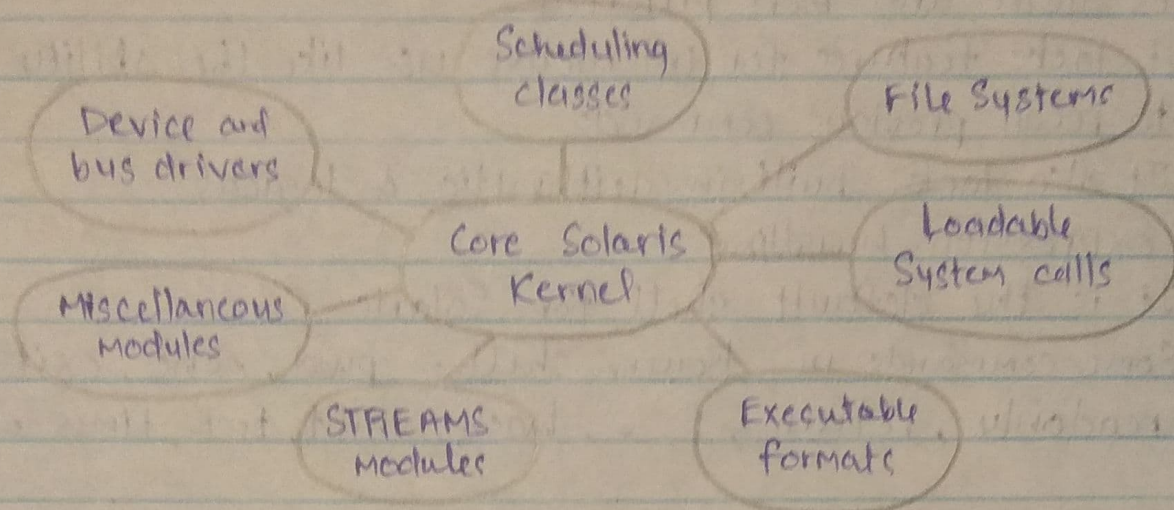 Scheduling
classes
File Systems
Device and
bus drivers
Core Solaris
Kernel
Loadable
System calls
Miscellaneous
Modules
STREAMS
Modules
Executable
formats